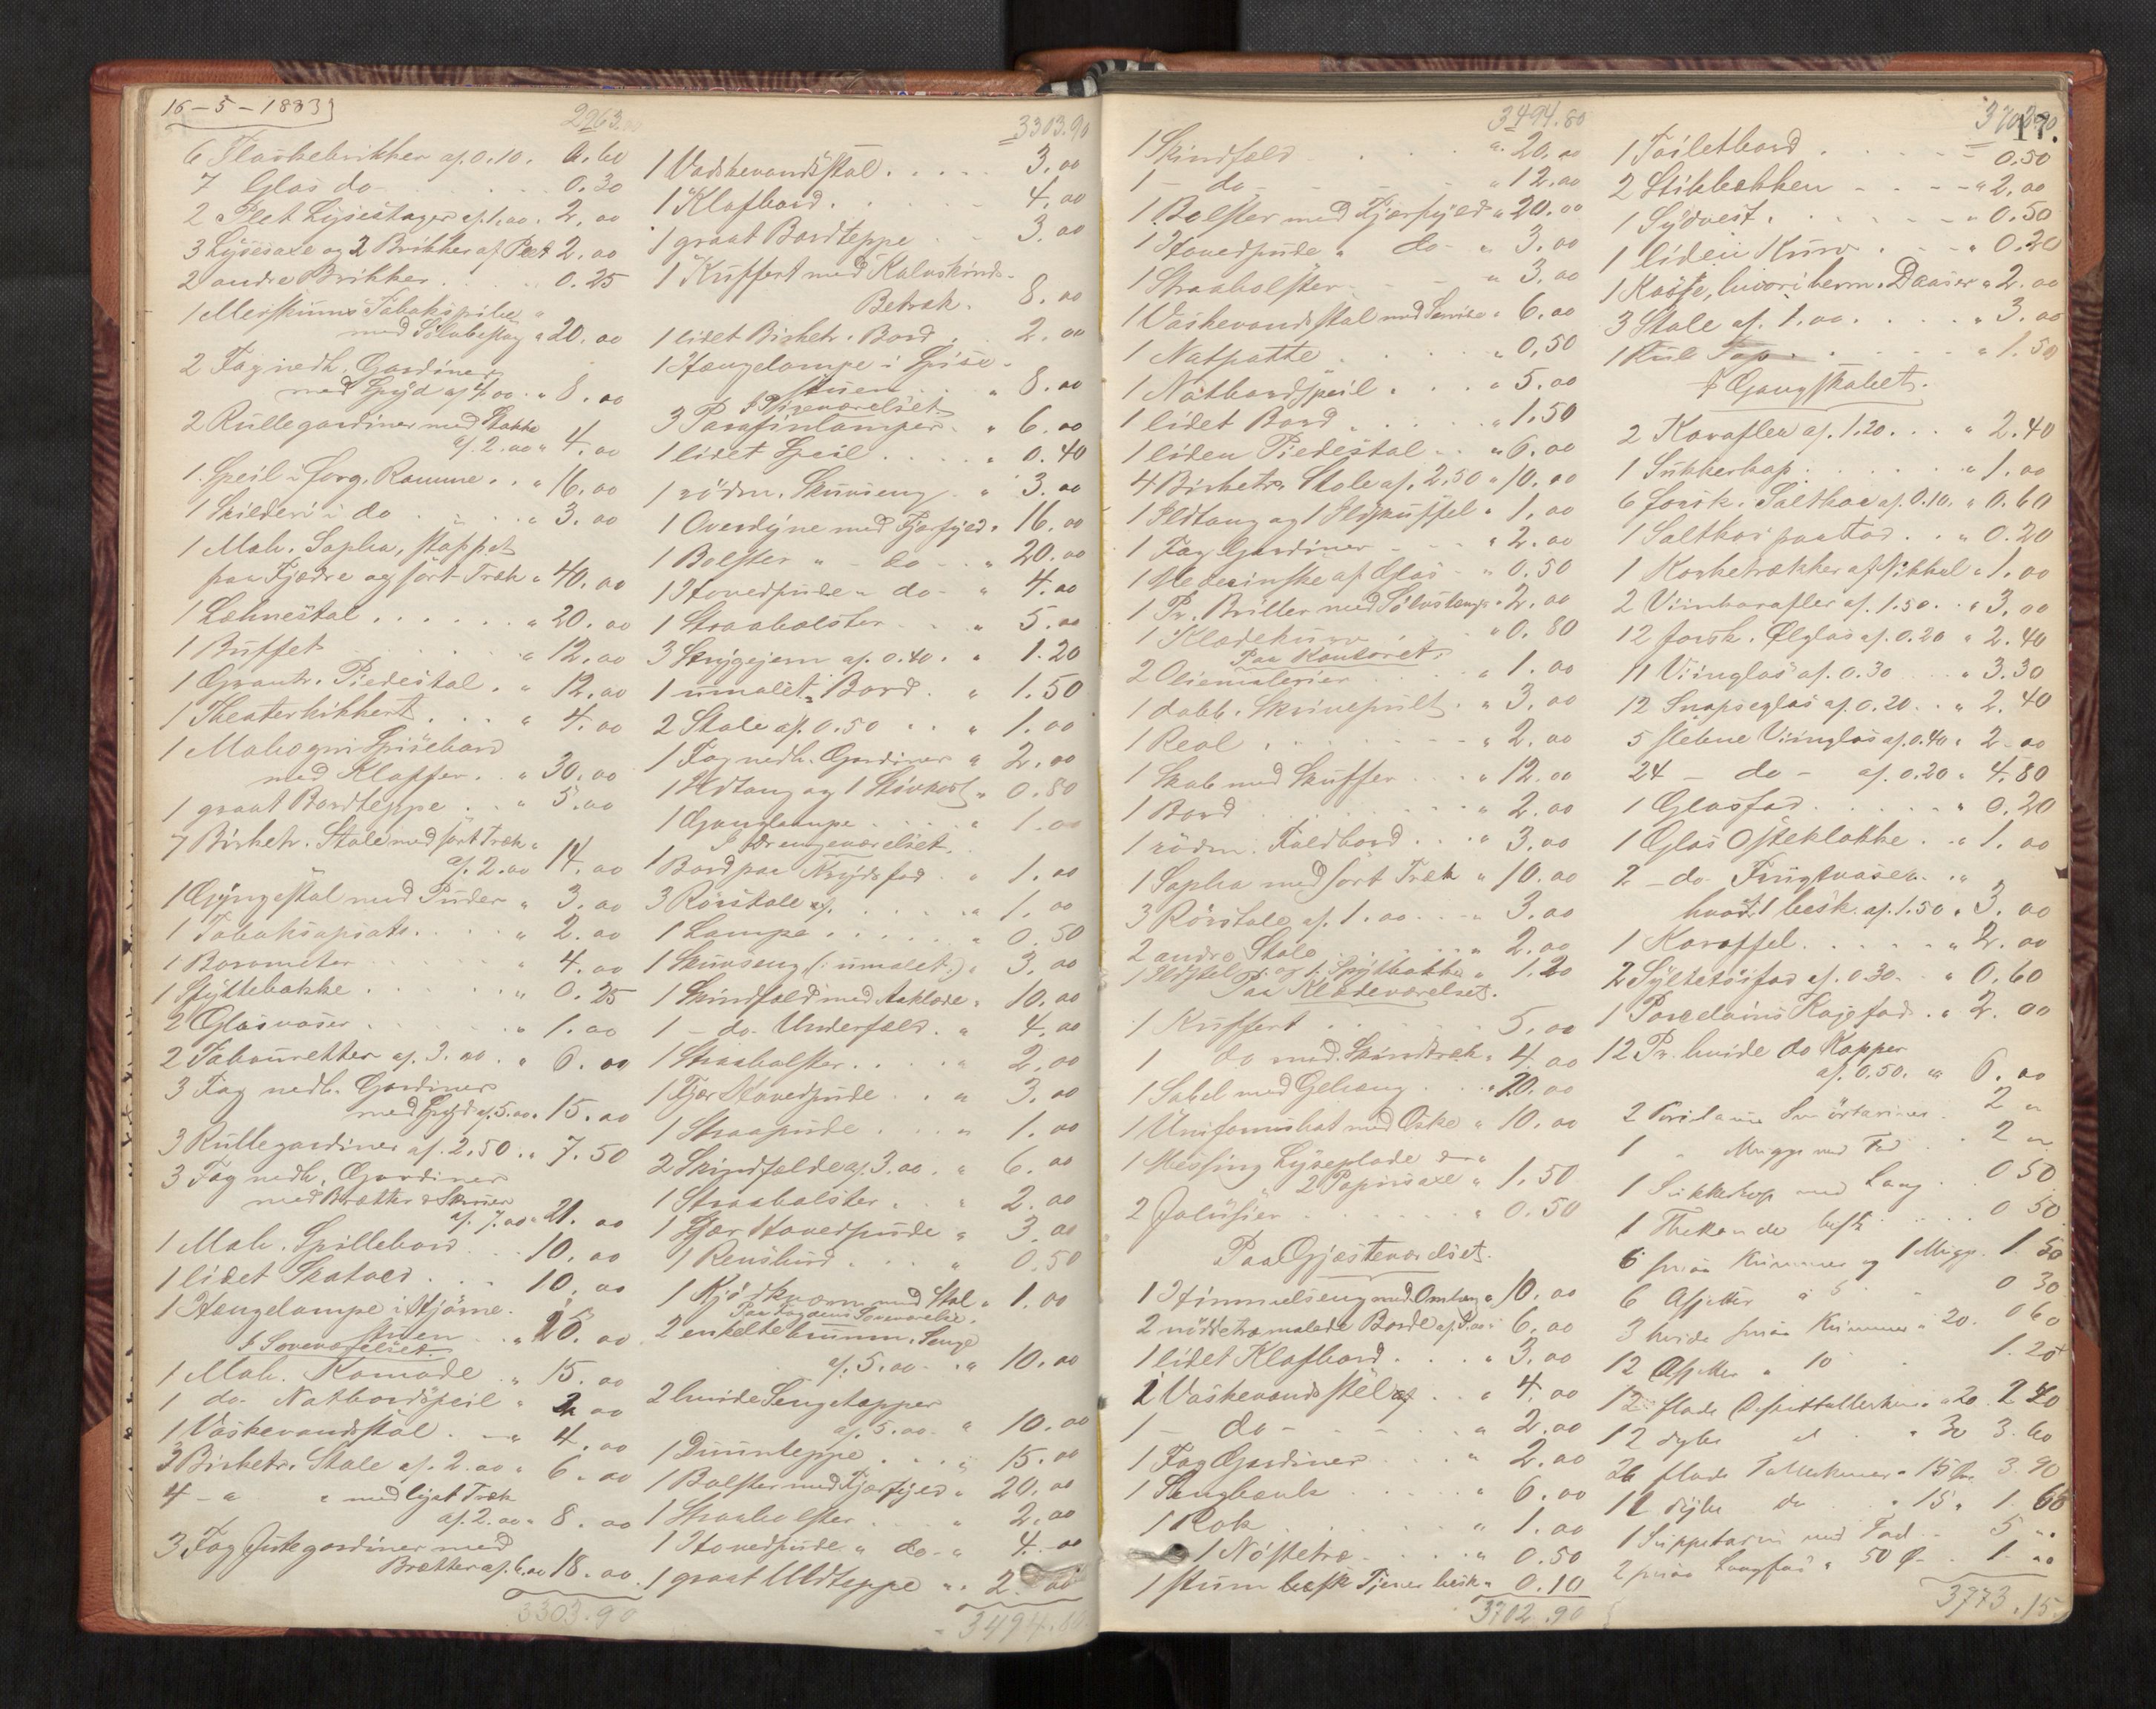 16-5-1883
2963.00
6 Flaskebrikker af 0.10. 0.60
7 Glas do 0.30
2 Plet Lysestager af 1.00. 2.00
3 Lysesaxe og 2 Brikker af Plet 2.00
2 andre Brikker 0.25
1 Merskums Tobakspibe
med Sølvbeslag " 20.00
2 Fag nedh. Gardiner
med Spyd af 4.00 " 8.00
2 Rullegardiner med
af 2.00 " 4.00
1 Speil i forg. Ramme " 16.00
1 Skilderi i do " 3.00
1 Mah. Sopha, stoppet
paa Fjædre og sort Træk " 40.00
1 Lænestol " 20.00
1 Buffet " 12.00
1 Grantr. Piedestal " 12.00
1 Theaterkikkert " 4.00
1 Mahogni Spisebord
med Klaffer " 30.00
1 graat Bordteppe " 5.00
7 Birketr. Stole med sort Træk "
af 2.00 14.00
1 Gyngestol med Puder " 3.00
1 Tobaksapirat " 2.00
1 Barometer 4.00
1 Spyttebakke " 0.25
2 Glasvaser " 1.00
2 Tabouretter af 3.00 " 6.00
3 Fag nedh. Gardiner
med Spyd af 5.00 " 15.00
3 Rullegardiner af 2.50 " 7.50
3 Fag nedh. Gardiner
med Brætter & Skruer
af 7.00 " 21.00
1 Mah. Spillebord 10.00
1 lidet Skatoll 10.00
1 Hængelampe i Hjørne-
stuen " 15.00
I Soveværelset.
1 Mah. Komode " 15.00
1 do. Natbordspeil " 2.00
1 Vaskevandsstol " 4.00
3 Birketr. Stole af 2.00 " 6.00
4 - " " med lyst Træk
af 2.00 " 8.00
3 Fag Jutegardiner med
Brætter af 6.00 18.00
3303.90
3303.90
1 Vaskevandsstol 3.00
1 Klafbord 4.00
1 graat Bordteppe 3.00
1 Kuffert med Kalveskinds-
Betræk. 8.00
1 lidet Birketr. Bord 2.00
1 Hængelampe i Spise-
stuen " 8.00
I Pigeværelset
3 Parafinlamper " 6.00
1 lidet Speil " 0.40
1 rödm. Skuvseng " 3.00
1 Overdyne med Fjærfyld " 16.00
1 Bolster " - do - " 20.00
1 Hovedpude " do - " 4.00
1 Straabolster " 5.00
3 Strygejern af 0.40 " 1.20
1 umalet Bord " 1.50
2 Stole af 0.50 " 1.00
1 Fag nedh. Gardiner " 2.00
1 Ildtang og 1 Støvkost " 0.80
1 Ganglampe 1.00
I Drengeværelset.
1 Bord paa Krydsfod " 1.00
3 Rörstole af " 1.00
1 Lampe " 0.50
1 Skuvseng (: umalet:) " 3.00
1 Skindfæld med Aaklæde " 10.00
1 - do - Underfæld " 4.00
1 Straabolster 2.00
1 Fjær Hovedpude " 3.00
1 Straapude " 1.00
2 Skindfælde af 3.00 " 6.00
1 Straabolster " 2.00
1 Fjær Hovedpude " 3.00
1 " 0.50
1 Kjødkværn med Stol " 1.00
2 enkelte brunm. Senge
af 5.00 " 10.00
2 hvide Sengetæpper
af 5.00 " 10.00
1 Duunteppe " 15.00
1 Bolster med Fjærfyld " 20.00
1 Straabolster " 2.00
1 Hovedpude " do - " 4.00
1 graat Uldteppe " 2.00
3494.80
3494.80
1 Skindfæld " 20.00
1 - do - " 12.00
1 Bolster med Fjærfyld " 20.00
1 Hovedpude " do - " 3.00
1 Straabolster " 3.00
1 Vaskevandsstol med Servise " 6.00
1 Natpotte " 0.50
1 Natbordspeil " 5.00
1 lidet Bord " 1.50
1 liden Piedestal " 6.00
4 Birketr. Stole af 2.50 " 10.00
1 Ildtang og 1 Ildskuffel " 1.00
1 Fag Gardiner " 2.00
1 af Glas " 0.50
1 Pr. Briller med Sølvstang " 2.00
1 Klædekurv " 0.80
Paa Kontoret.
2 Oliemalerier " 1.00
1 dobb. Skrivepult " 3.00
1 Reol " 2.00
1 Skab med Skuffer " 12.00
1 Bord " 2.00
1 rödm. Foldbord " 3.00
1 Sopha med sort Træk " 10.00
3 Rörstole af 1.00 " 3.00
2 andre Stole " 2.00
og 1 Spytbakke " 1.20
Paa Klædeværelset.
1 Kuffert 5.00
1 do med Skindtræk " 4.00
1 Sabel med Gehæng " 20.00
1 Uniformshat med Æske " 10.00
1 Messing Lyseplade &
2 Papirsaxe " 1.50
2 Jalusier " 0.50
Paa Gjæsteværelset.
1 Himmelseng med Omhæng " 10.00
2 malede Borde af 3.00 " 6.00
1 lidet Klafbord " 3.00
1 Vaskevandsstel " 4.00
1 - do - " 2.00
1 Fag Gardiner " 2.00
1 Sengbænk " 6.00
1 Rok " 1.00
1 Nøstetræ " 0.50
1 stum Tjener besk. " 0.10
3702.90
3702.90
17.
1 Toiletbord 0.50
2 Stikbækken " 2.00
1 Sydvest " 0.50
1 liden Kurv " 0.20
1 Kasse, hvori herm. Daaser " 2.00
3 Stole af 1.00 " 3.00
1 " 1.50
I Gangskabet.
2 Karafler af 1.20 " 2.40
1 Sukkerkop " 1.00
6 forsk. Saltkar af 0.10 " 0.60
1 Saltkar paa Fod " 0.20
1 Korketrækker af Nikkel " 1.00
2 Viinkarafler af 1.50 " 3.00
12 forsk. Ølglas af 0.20 " 2.40
11 Viinglas af 0.30 " 3.30
12 Snapseglas af 0.20 " 2.40
5 slebne Viinglas af 0.40 " 2.00
24 - do - af 0.20 " 4.80
1 Glasfad " 0.20
1 Glas Osteklokke " 1.00
2 - do - Frugtvaser "
hvoraf 1 besk. af 1.50 " 3.00
1 Karaffel " 2.00
2 Syltetøifad af 0.30 " 0.60
1 Porcelains Kagefad " 2.00
12 Pr. hvide do Kopper
af 0.50 " 6.00
2 Porcelains Smørteriner 2 "
1 " Mugge med Fad 2 "
1 Sukkerkop med Laag 0 50
1 Thekande besk. 0 50
6 smaa Kummer og 1 Mugge 1 50
6 Asjetter á 5 0 30
3 hvide smaa Kummer " 20 0 60
12 Asjetter " 10 1.20
12 flade Desserttallerkener " 20 2 40
12 dybe d " 30 3.60
26 flade Tallerkener " 15 Øre 3.90
11 dybe do " 15 " 1.65
1 Suppeterin med Fad 5 "
2 smaa Langfad " 50 Ø 1.00
3773.15